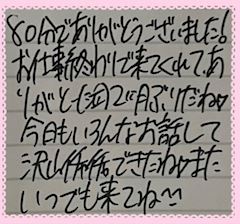 80分でありがとうございました!
お仕事終わりで来てくれてあ
りがと〜 2ヶ月ぶりだねw
今日もいろんなお話して
沢山できたねwまた
いつでも来てね〜